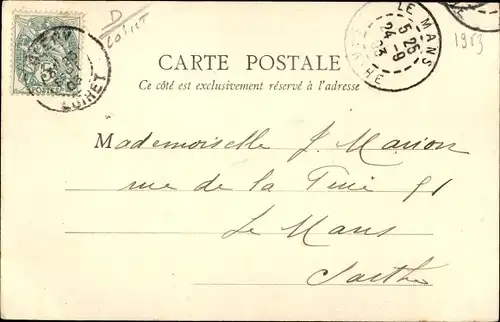 D
Loiret
LE MANS
5 25
24 - 9
03
SARTHE
1903
POSTES
LOIRET
CARTE POSTALE
Ce côté est exclusivement réservé à l'adresse
Mademoiselle J. Marion
rue de la
Le Mans
Sarthe